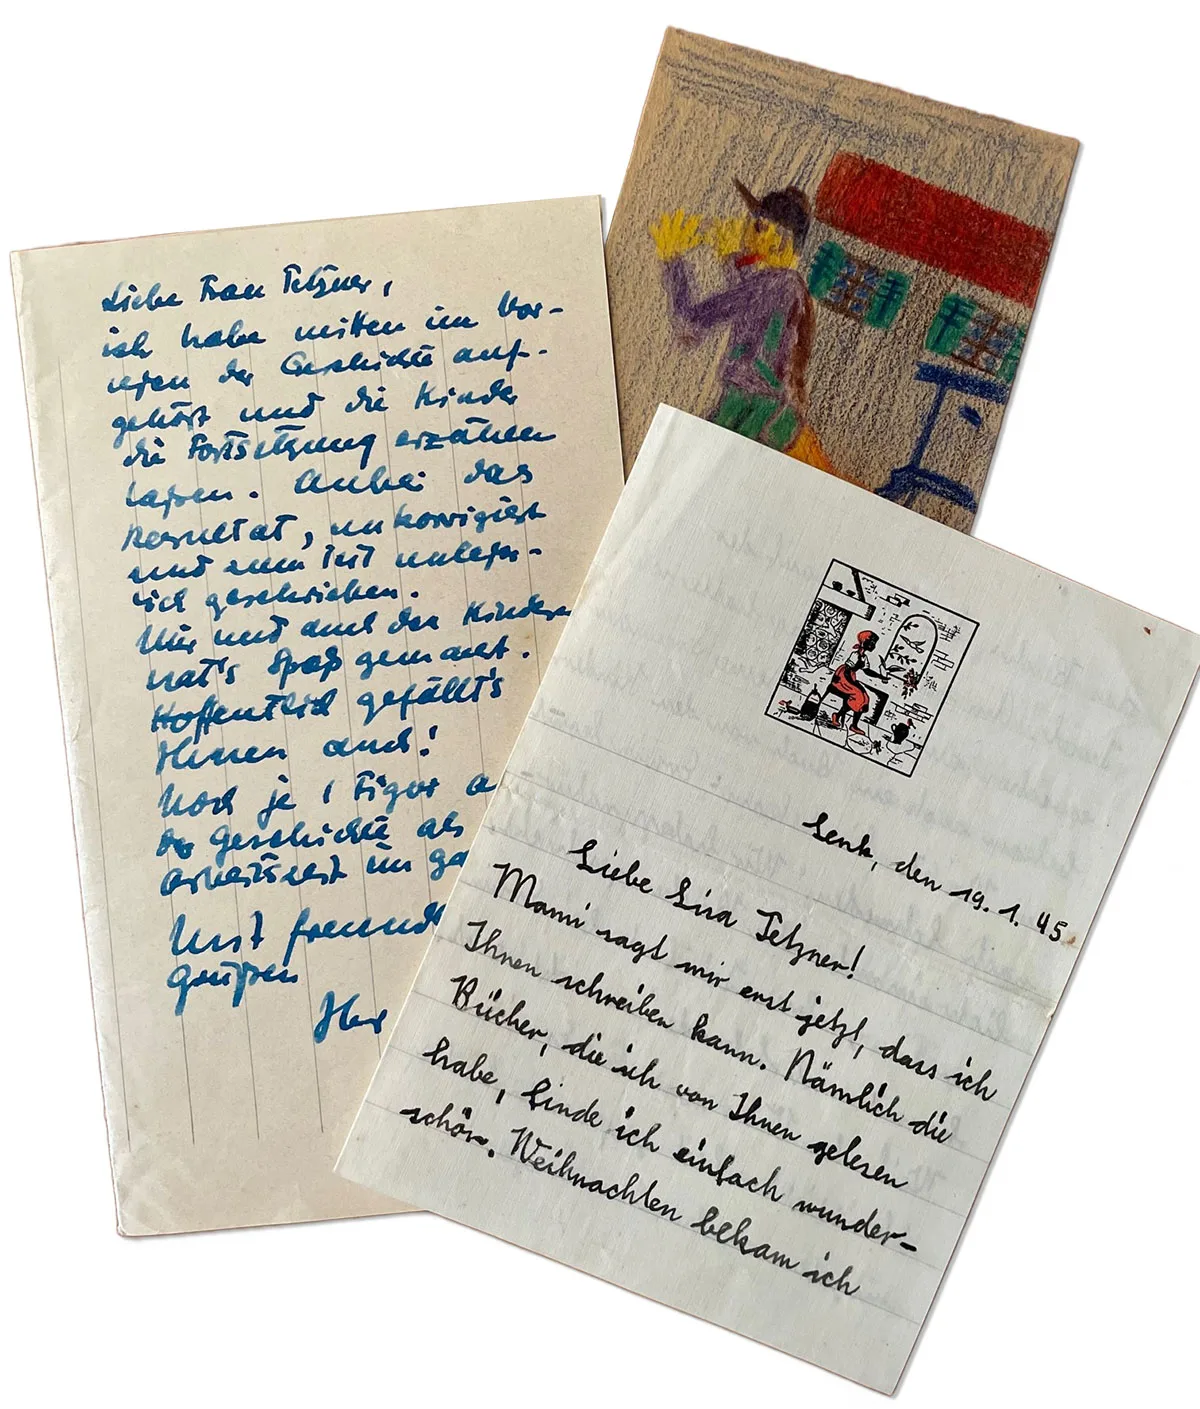 Liebe Frau Tetzner,
ich habe mitten im Vor-
lesen der Geschichte auf-
gehört und die Kinder
die Fortsetzung erzählen
lassen. Anbei das
Resultat, unkorrigiert
und zum Teil unleser-
lich geschrieben.
Mir und auch den Kindern
hat's Spaß gemacht.
Hoffentlich gefällt's
Ihnen auch!
Noch je 1 Figur a
der Geschichte als
Arbeitszeit im ga
Mit freundl
Grüßen
Lenk, den 19. 1. 45
Liebe Lisa Tetzner!
Mami sagt mir erst jetzt, dass ich
Ihnen schreiben kann. Nämlich die
Bücher, die ich von Ihnen gelesen
habe, finde ich einfach wunder-
schön. Weihnachten bekam ich